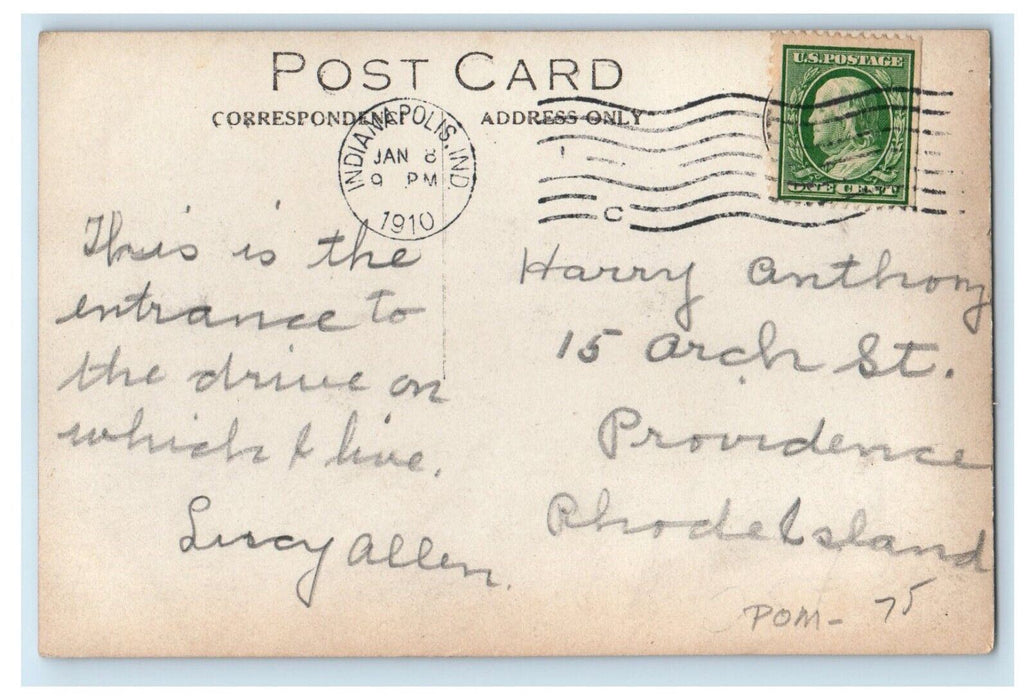 POST CARD
CORRESPONDENCE ADDRESS ONLY
U.S. POSTAGE
ONE CENT
INDIANAPOLIS, IND
JAN 8
9 PM
1910
C
This is the
entrance to
the drive on
which I live.
Lucy Allen.
Harry Anthony
15 Arch St.
Providence
Rhode Island
POM- 75